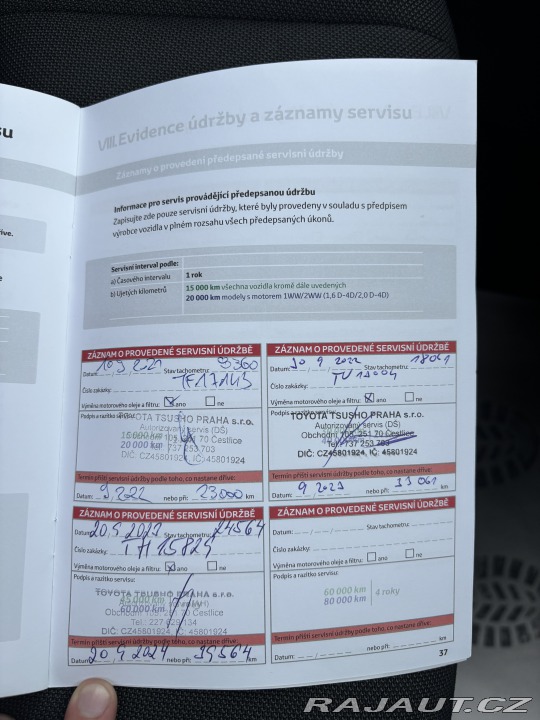 su
VIII. Evidence údržby a záznamy servisu
Záznamy o provedení předepsané servisní údržby
Informace pro servis provádějící předepsanou údržbu
Zapisujte zde pouze servisní údržby, které byly provedeny v souladu s předpisem
výrobce vozidla v plném rozsahu všech předepsaných úkonů.
Servisní interval podle:
a) Časového intervalu 1 rok
b) Ujetých kilometrů 15 000 km všechna vozidla kromě dále uvedených
20 000 km modely s motorem 1WW/2WW (1,6 D-4D/2,0 D-4D)
ZÁZNAM O PROVEDENÉ SERVISNÍ ÚDRŽBĚ
Datum: Stav tachometru:
Číslo zakázky:
Výměna motorového oleje a filtru: ano ne
Podpis a razítko servisu:
TOYOTA TSUSHO PRAHA s.r.o.
Autorizovaný servis (DS)
15 000 km
20 000 km
251 70 Čestlice
DIČ: CZ45801924, IČ: 45801924
Termín příští servisní údržby podle toho, co nastane dříve:
Datum: 9.2022 nebo při: 23000 km
ZÁZNAM O PROVEDENÉ SERVISNÍ ÚDRŽBĚ
Datum: 9 2022 Stav tachometru: 18061
Číslo zakázky:
Výměna motorového oleje a filtru: ano ne
Podpis a razítko servisu:
TOYOTA TSUSHO PRAHA s.r.o.
Autorizovaný servis (DS)
Obchodní 105, 251 70 Čestlice
Tel.: 737 253 703
DIČ: CZ45801924, IČ: 45801924
Termín příští servisní údržby podle toho, co nastane dříve:
Datum: 9.2023 nebo při: 33 061 km
ZÁZNAM O PROVEDENÉ SERVISNÍ ÚDRŽBĚ
Datum: Stav tachometru: 24564
Číslo zakázky:
Výměna motorového oleje a filtru: ano ne
Podpis a razítko servisu:
TOYOTA TSUSHO PRAHA s.r.o.
45 000 km
60 000 km
Obchodní 105, 251 70 Čestlice
DIČ: CZ45801924, IČ: 45801924
Termín příští servisní údržby podle toho, co nastane dříve:
Datum: 2024 nebo při: 39564 km
ZÁZNAM O PROVEDENÉ SERVISNÍ ÚDRŽBĚ
Datum: Stav tachometru:
Číslo zakázky:
Výměna motorového oleje a filtru: ano ne
Podpis a razítko servisu:
60 000 km
80 000 km
4 roky
Termín příští servisní údržby podle toho, co nastane dříve:
Datum: nebo při: km
37
RAJAUT.CZ